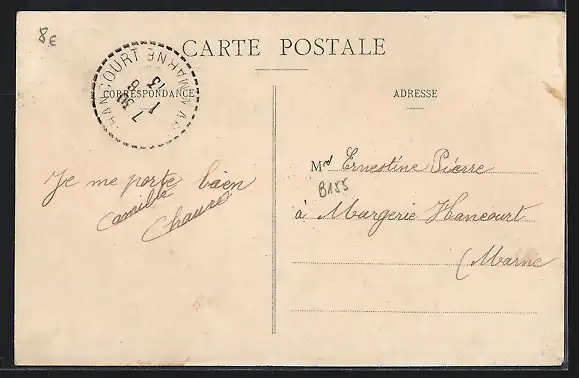 8 E
CARTE POSTALE
HANCOURT MARNE
7 30
1 6
13
CORRESPONDANCE
ADRESSE
Je me porte bien
Camille
Chauré
Md Ernestine Pierre
B185
à Margerie Hancourt
(Marne